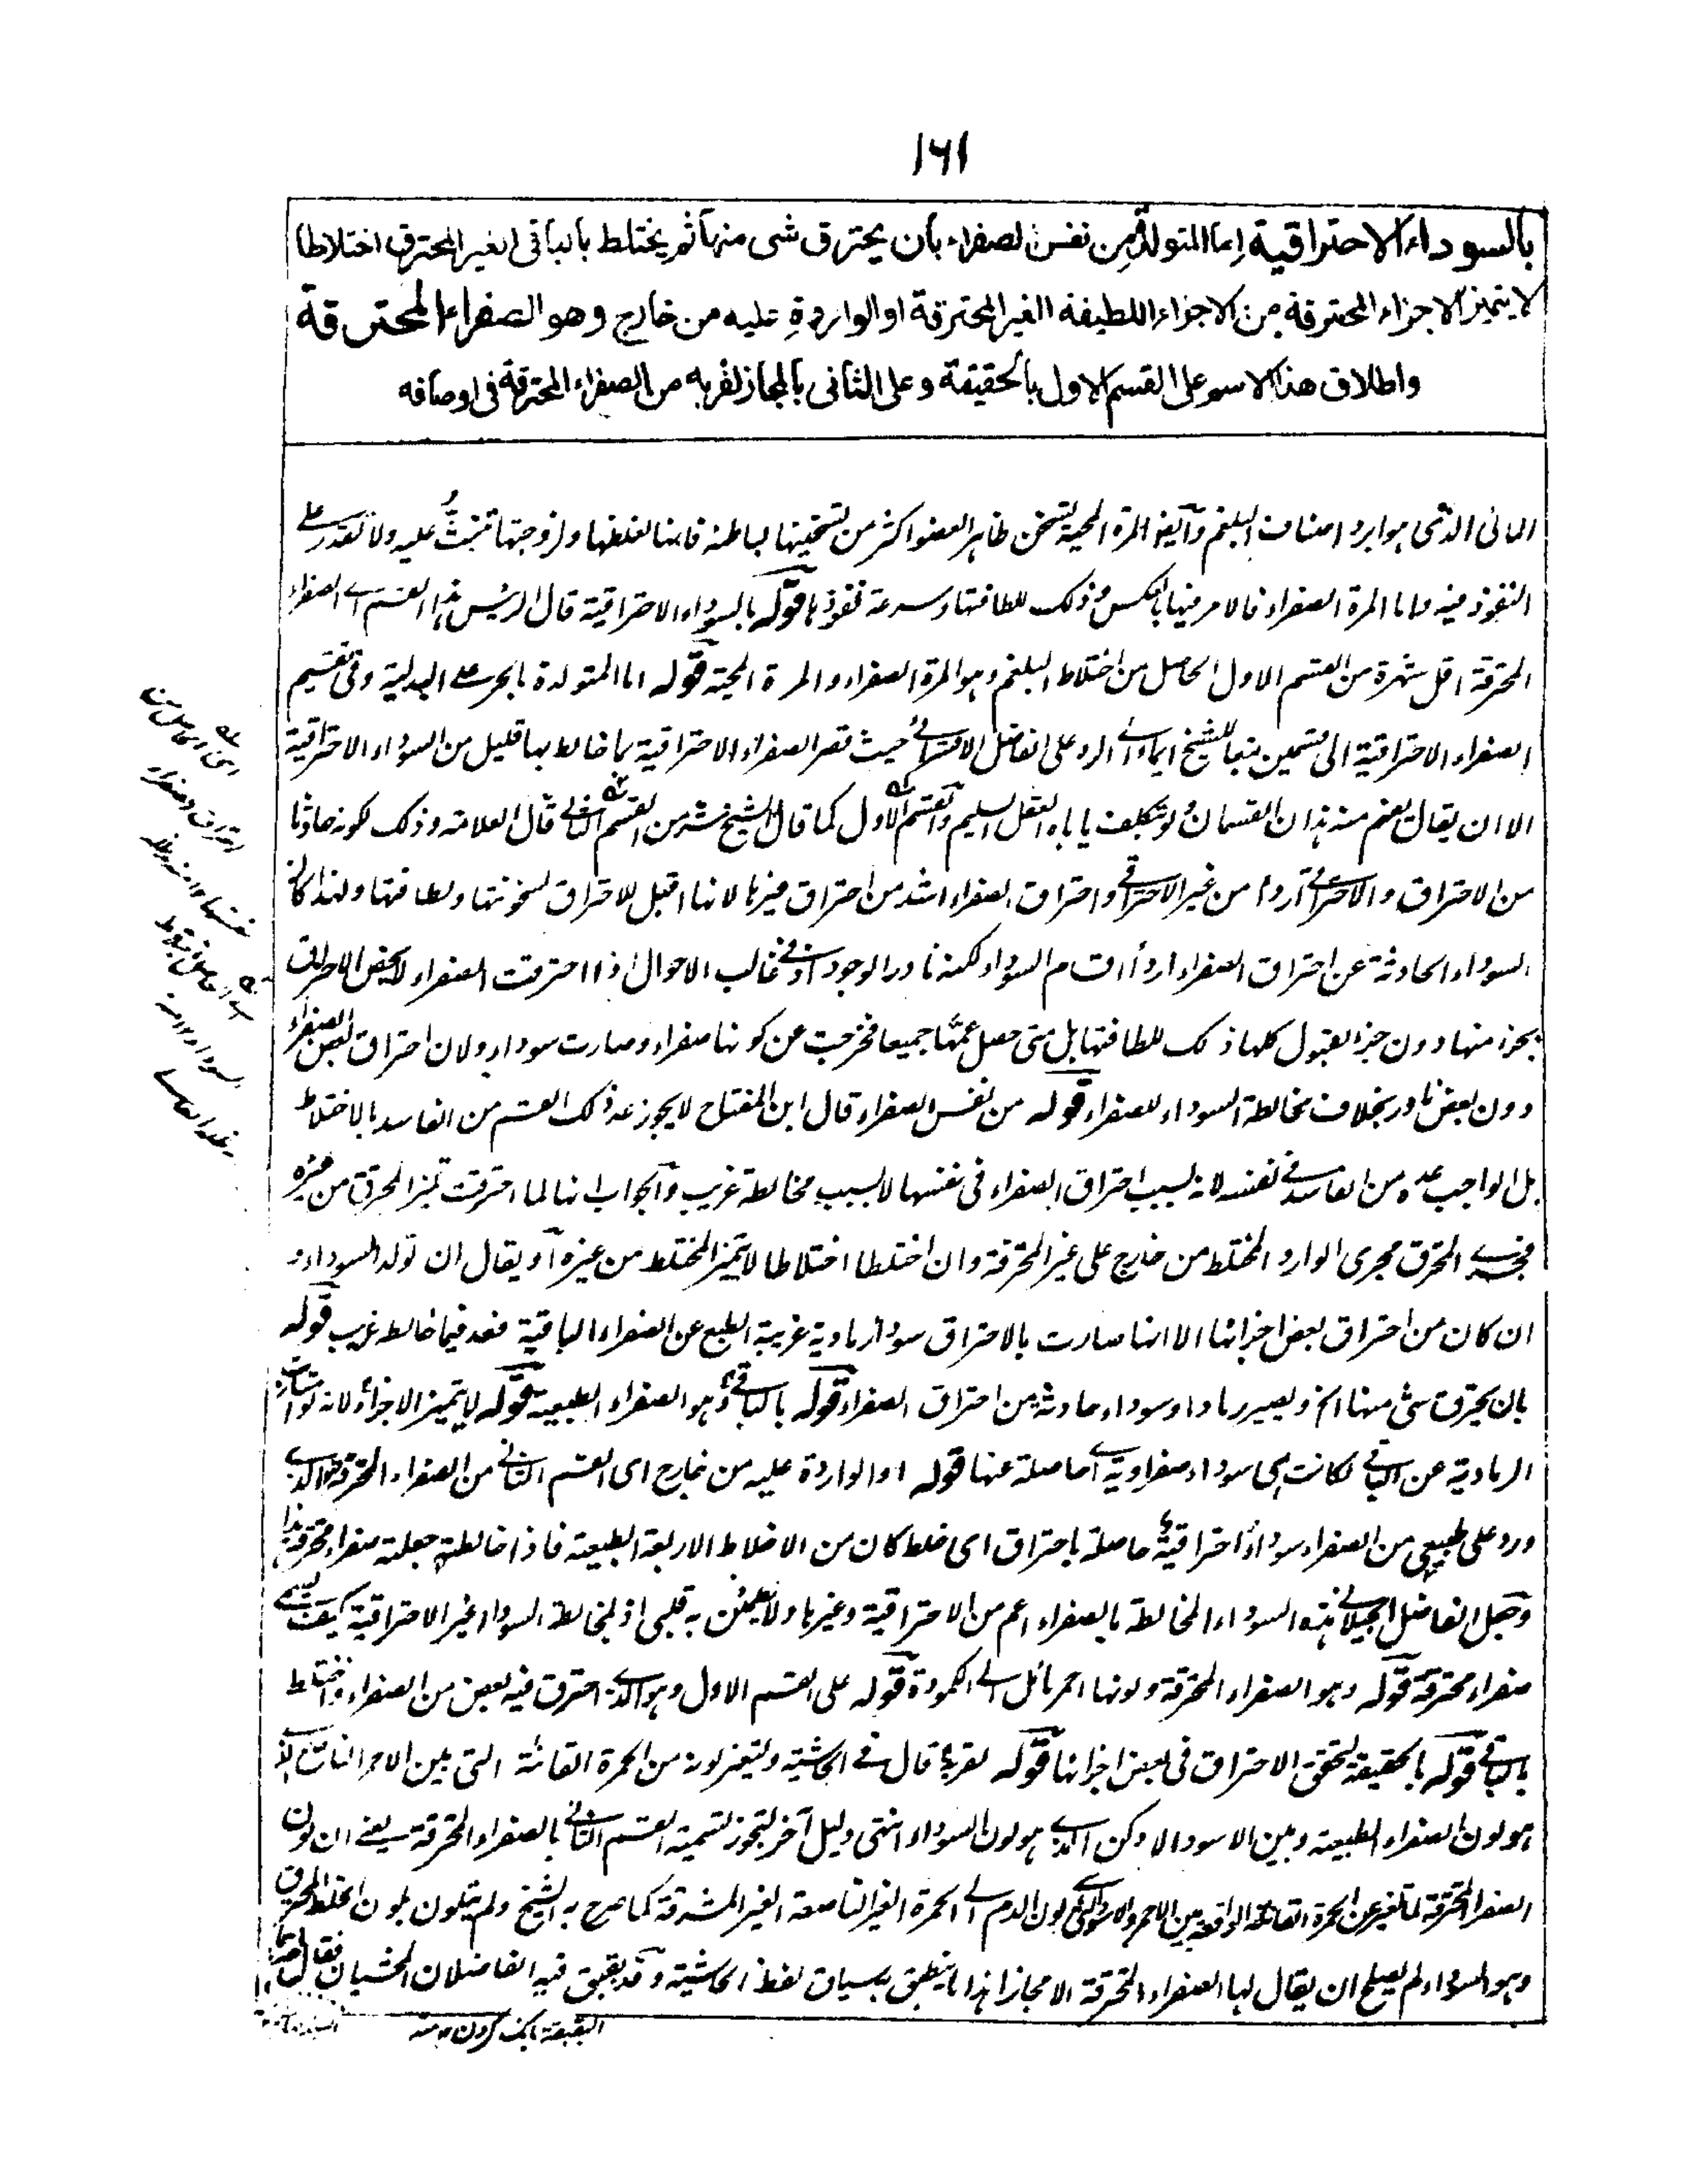 ۱۶۱
بالسوداء الاحتراقية اما المتولدة من نفس الصفراء بان يحترق شی منها ثم يختلط بالباقی الغير المحترق اختلاطا
لا يتميز الاجزاء المحترقة من الاجزاء اللطيفة الغير المحترقة او الواردة عليه من خارج وهو الصفراء المحترقة
واطلاق هذا الاسم علی القسم الاول بالحقيقة وعلی الثانی بالمجاز لقربه من الصفراء المحترقة فی اوصافه
المائی الذی هو ابرد اصناف البلغم وايضا المرة المحية تسخن ظاهر العضو اكثر من تسخينها لباطنه فانها لغلظها ولزوجتها تثبت عليه ولا تقدر علے
النفوذ فيه واما المرة الصفراء فالامر فيها بالعكس وذلك للطافتها وسرعة نفوذها قوله بالسوداء الاحتراقية قال الرئيس هذا القسم اے الصفراء
المحترقة اقل شهرة من القسم الاول الحاصل من اختلاط البلغم وهو المرة الصفراء والمرة المحية قوله اما المتولدة بالجر علے البدلية وفی تقسيم
الصفراء الاحتراقية الی قسمين تبعا للشيخ ايماء الے الرد علی الفاضل الاقسرائے حيث قصر الصفراء الاحتراقية بما خالط بها قليل من السوداء الاحتراقية
الا ان يقال يفهم منه هذان القسمان ولو بتكلف ياباه العقل السليم والقسم الاول كما قال الشيخ شر من القسم الثانے قال العلامة وذلك لكونه حادثا
من الاحتراق والاحتراقے اردا من غير الاحتراقے واحتراق الصفراء اشد من احتراق غيرها لانها اقبل للاحتراق لسخونتها ولطافتها ولهذا كانت
السوداء الحادثة عن احتراق الصفراء اردأ اقسام السوداء لكنه نادر الوجود اذ فے غالب الاحوال اذا احترقت الصفراء لا يختص الاحتراق
بجزء منها دون جزء لقبول كلها ذلك للطافتها بل متی حصل عمها جميعا فخرجت عن كونها صفراء وصارت سوداء ولان احتراق بعض الصفراء
دون بعض نادر بخلاف مخالطة السوداء للصفراء قوله من نفس الصفراء قال ابن المفتاح لا يجوز عد ذلك القسم من الفاسد بالاختلاط
بل الواجب عده من الفاسد فے نفسه لانه بسبب احتراق الصفراء فی نفسها لا بسبب مخالطة غريب والجواب انها لما احترقت تميز المحترق من غيره
فجرے المحترق مجری الوارد المختلط من خارج علی غير المحترقة وان اختلطا اختلاطا لا يتميز المختلط من غيره او يقال ان تولد السوداء
ان كان من احتراق بعض اجزائها الا انها صارت بالاحتراق سوداء رمادية غريبة الطبع عن الصفراء الباقية فعد فيما خالط غريب قوله
بان يحترق شی منها الخ ويصير رمادا وسوداء حادثة من احتراق الصفراء قوله بالباقے وهو الصفراء الطبيعية قوله لا يتميز الاجزاء لانه لو امتازت
الرمادية عن الباقے لكانت هی سوداء صفراوية حاصلة عنها قوله او الواردة عليه من خارج ای القسم الثانے من الصفراء المحترقة هو الذے
ورد علی طبيعی من الصفراء سوداء احتراقية حاصلة باحتراق ای خلط كان من الاخلاط الاربعة الطبيعية فاذا خالطته جعلته صفراء محترقة هذا
وجعل الفاضل الجيلانے هذه السوداء المخالطة بالصفراء اعم من الاحتراقية وغيرها ولا يطمئن به قلبی اذ المخالطة السوداء غير الاحتراقية كيف تسمے
صفراء محترقة قوله وهو الصفراء المحترقة ولونها احمر مائل الے الكمودة قوله علی القسم الاول وهو الذے احترق فيه بعض من الصفراء واختلط
بالباقے قوله بالحقيقة لتحقق الاحتراق فی بعض اجزائها قوله لقربه قال فے الحاشية وليتغير لونه من الحمرة القانئة التی بين الاحمر الناصع الذے
هو لون الصفراء الطبيعية وبين الاسود الادكن الذے هو لون السوداء انتهی دليل آخر لتجوز تسمية القسم الثانے بالصفراء المحترقة يعنے ان لون
الصفراء المحترقة لما تغير عن الحمرة القانئة الواقعة بين الاحمر والاسود الے لون الدم اے الحمرة الغير الناصعة الغير المشرقة كما صرح به الشيخ ولم يتلون بلون الخلط المحترق
وهو السوداء لم يصلح ان يقال لها الصفراء المحترقة الا مجازا هذا ما ينطبق بسياق لفظ الحاشية وقد بقبق فيه الفاضلان المحشيان فقال